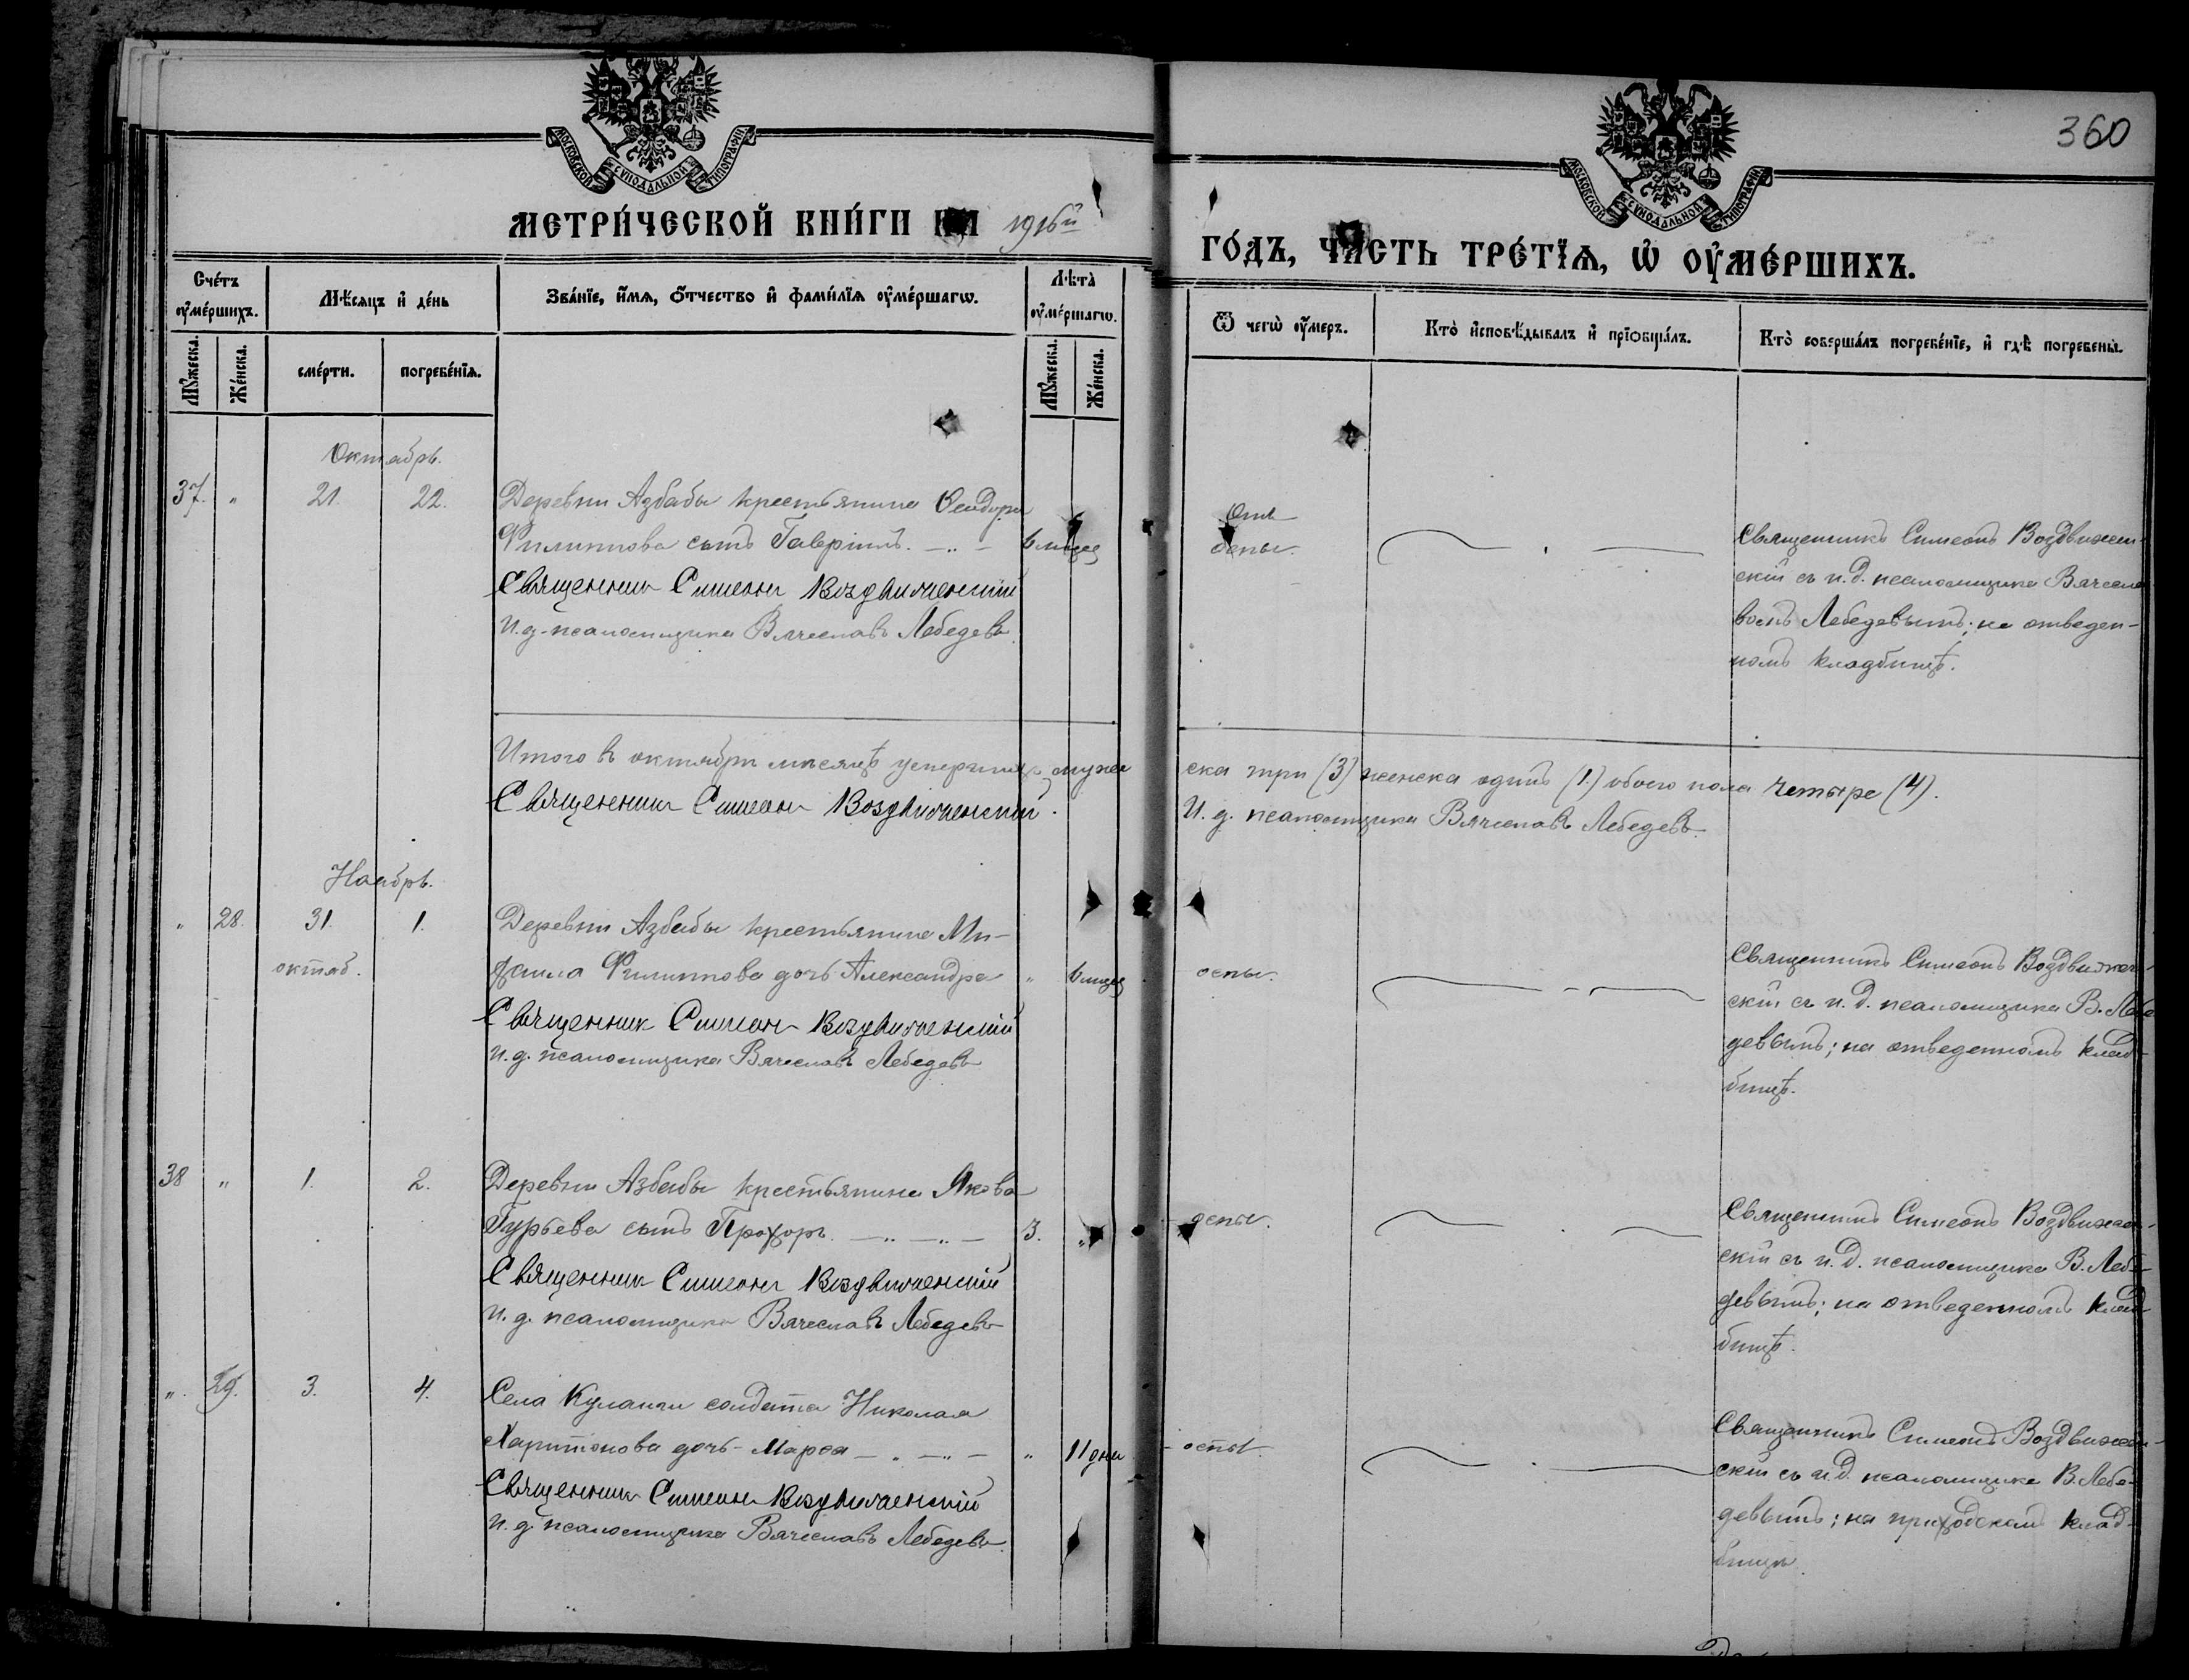 МОСКОВСКОЙ СѴНОДАЛЬНОЙ ТИПОГРАФІИ
МОСКОВСКОЙ СѴНОДАЛЬНОЙ ТИПОГРАФІИ
360
МЕТРИ́ЧЕСКОЙ КНИ́ГИ НА 1916й
ГО́ДЪ, ЧА́СТЬ ТРЕ́ТІѦ, Ѡ҆ ОУ҆МЕ́РШИХЪ.
Сче́тъ оу҆ме́ршихъ.
Мѣ́сяцъ и҆ де́нь
Зва́нїе, и҆́мя, ѻ҆́тчество и҆ фами́лїя оу҆ме́ршагѡ.
Лѣ́та оу҆ме́ршагѡ.
Ѿ чегѡ̀ оу҆́меръ.
Кто̀ и҆сповѣ́дывалъ и҆ прїѡбща́лъ.
Кто̀ соверша́лъ погребе́нїе, и҆ гдѣ̀ погребены̀.
Мꙋ́жеска.
Же́нска.
сме́рти.
погребе́нїя.
Мꙋ́жеска.
Же́нска.
Октябрь.
37. " 21. 22. Деревни Азбабы крестьянина Ѳеодора
Филиппова сынъ Гавріилъ. — " — 6 мцев
Священник Симеон Воздвиженскій
И. д. псаломщика Вячеславъ Лебедевъ
Отъ
оспы.
Священникъ Симеонъ Воздвижен-
скій съ и. д. псаломщика Вячесла-
вомъ Лебедевымъ; на отведен-
номъ кладбищѣ.
Итого в октябрѣ мѣсяцѣ умерших мужес
ска три (3) женска одинъ (1) обоего пола четыре (4).
Священник Симеон Воздвиженскій.
И. д. псаломщика Вячеславъ Лебедевъ.
Ноябрь.
" 28. 31. 1. Деревни Азбабы крестьянина Ми-
октяб.
хаила Филиппова дочь Александра " 6 мцев
Священник Симеон Воздвиженскій
И. д. псаломщика Вячеславъ Лебедевъ
оспы.
Священникъ Симеонъ Воздвижен-
скій съ и. д. псаломщика В. Лебе
девымъ; на отведенномъ клад-
бищѣ.
38 " 1. 2. Деревни Азбабы крестьянина Якова
Гурьева сынъ Прохоръ. — " — " — 3. "
Священник Симеон Воздвиженскій
И. д. псаломщика Вячеславъ Лебедевъ
оспы.
Священникъ Симеонъ Воздвижен-
скій съ и. д. псаломщика В. Лебе-
девымъ; на отведенномъ клад
бищѣ.
". 29. 3. 4. Села Куланги солдата Николая
Харитонова дочь Марѳа — " — " — " 11 дни
Священник Симеон Воздвиженскій
И. д. псаломщика Вячеславъ Лебедевъ.
оспы.
Священникъ Симеонъ Воздвижен-
скій съ и. д. псаломщика В. Лебе-
девымъ; на приходскомъ клад-
бищѣ.